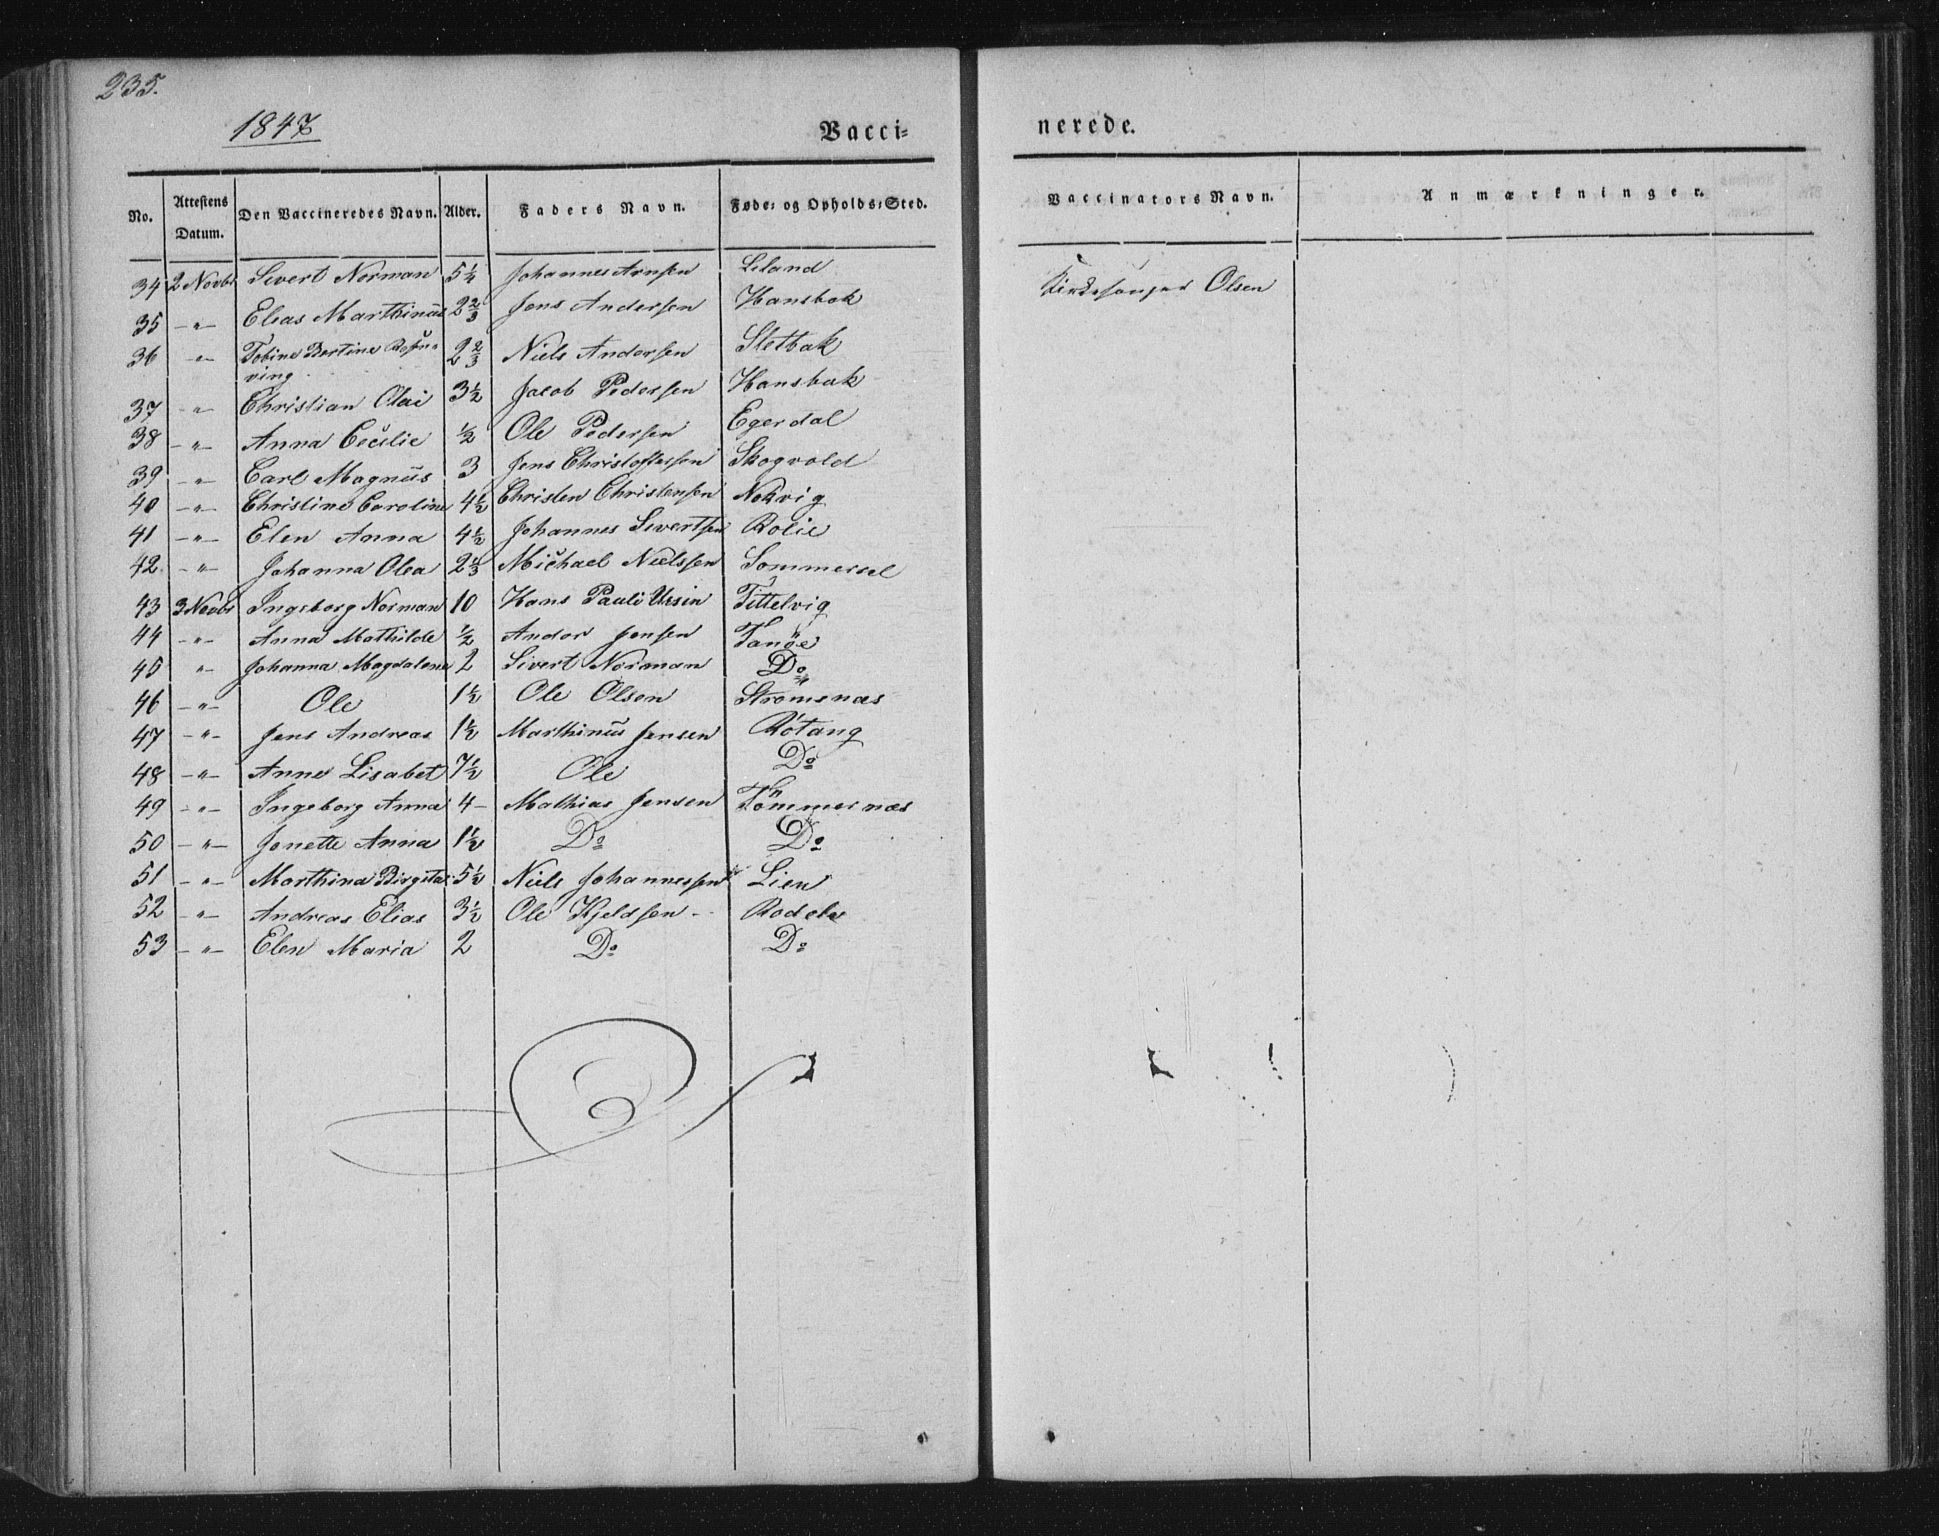 235.
1847
Vacci=
nerede.
No. Attestens Datum. Den Vaccineredes Navn. Alder. Faders Navn. Føde= og Opholds=Sted. Vaccinators Navn. Anmærkninger.
34 2 Novbr Sivert Norman 5 1/4 Johannes Arnsen Leland Kirkesanger Olsen
35 -"- Elias Marthinus 2 2/3 Jens Andersen Hansbak
36 -"- Tobine Bertine 2 2/3 Niels Andersen Sletbak
ving
37 -"- Christian Olai 3 1/2 Jacob Pedersen Hansbak
38 -"- Anna Cecilie 1/2 Ole Pedersen Egerdal
39 -"- Carl Magnus 3 Jens Christoffersen Skogvold
40 -"- Christine Caroline 4 1/2 Christen Christensen Nekvig
41 -"- Elen Anna 4 1/2 Johannes Sivertsen Rolie
42 -"- Johanna Olea 2 Michael Nielssen Sommersel
43 3 Novbr Ingeborg Norman 10 Hans Pauli Ursin Tittelvig
44 -"- Anna Mathilde 1/2 Andor Jensen Tanöe
45 " Johanna Magdalena 2 Sivert Norman Do
46 -"- Ole 1 1/2 Ole Olsen Strømsnæs
47 -"- Jens Andreas 1 1/2 Marthinus Jensen Røtang
48 -"- Anne Lisabet 7 1/2 Ole Do
49 -"- Ingeborg Anna 4 - Mathias Jensen Tømmernæs
50 -"- Jonette Anna 1 1/2 Do Do
51 -"- Marthina Birgitta 5 1/2 Niels Johannessen Lien
52 -"- Andreas Elias 3 1/2 Ole Kjeldsen -- Rodele
53 -"- Elen Maria 2 Do Do